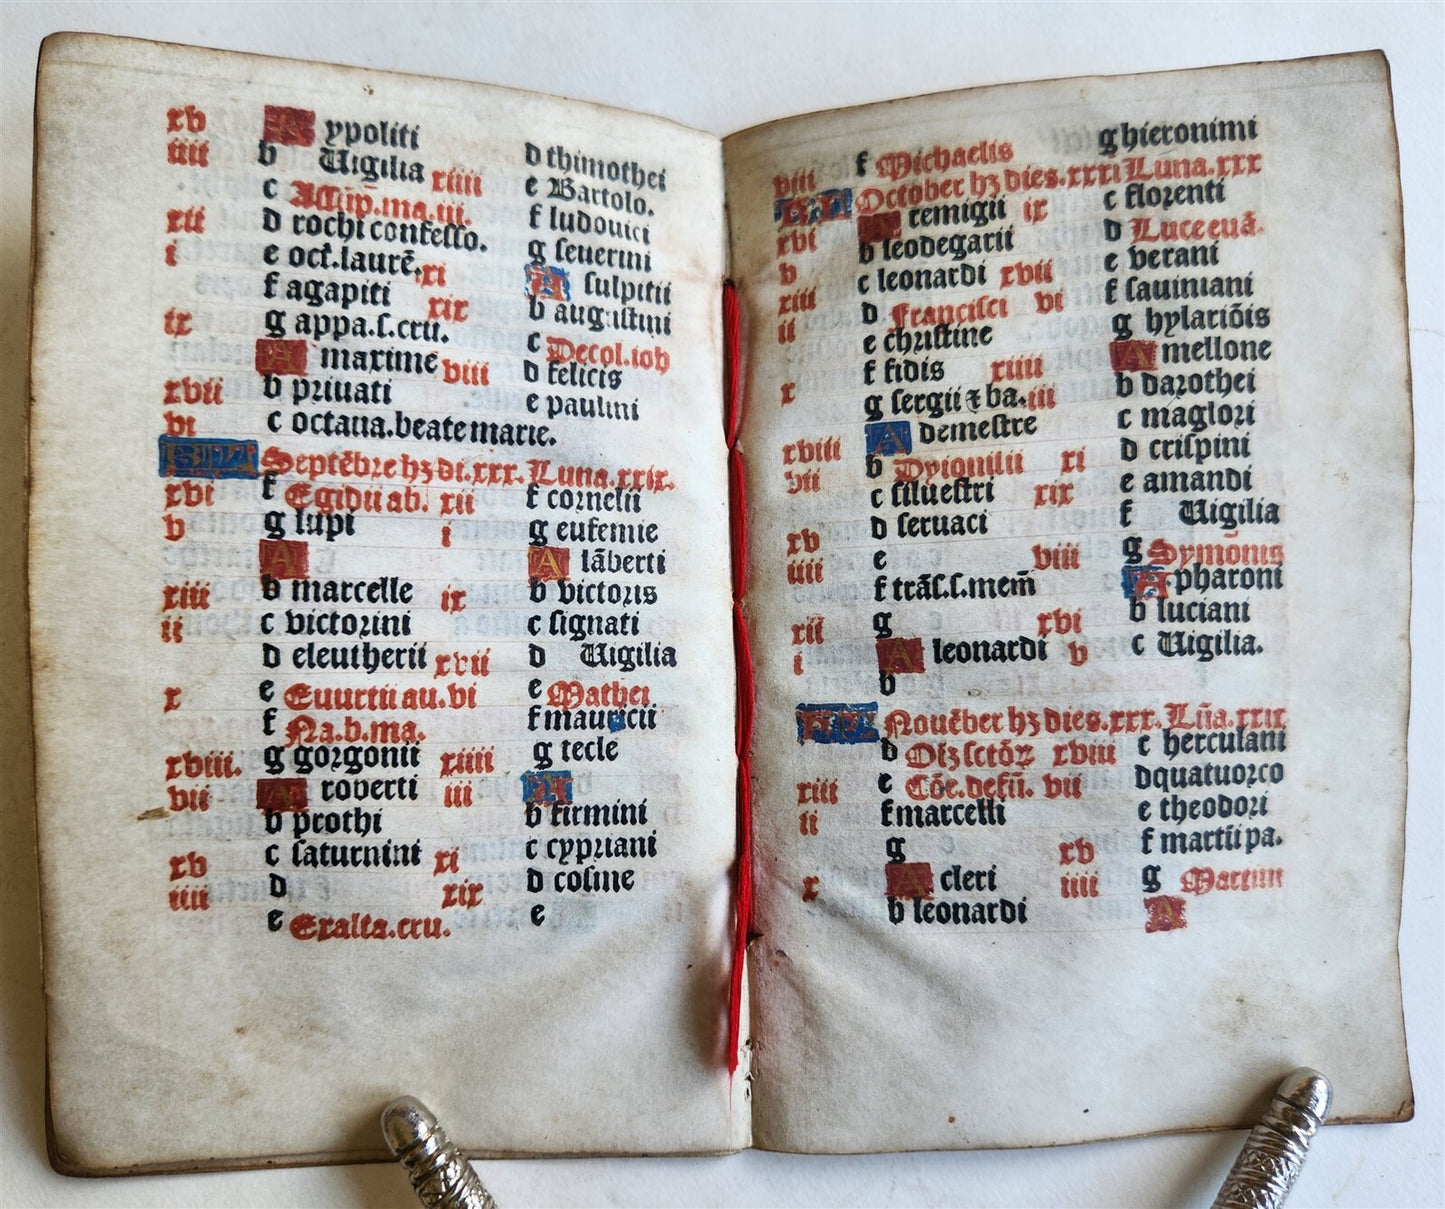 xv A ypoliti
iiii b Uigilia
c Assūp.ma.iii.
xii d rochi confesso.
i e oct.laurē.
f agapiti
ix g appa.s.cru.
A maxime
xvii b priuati
vi c octaua.beate marie.
xiiii d thimothei
e Bartolo.
f ludouici
g seuerini
xi A sulpitii
xix b augustini
c Decol.ioh
viii d felicis
e paulini
KL Septēbre hȝ di.xxx. Luna.xxix.
xvi f Egidii ab.
v g lupi
A
xiii b marcelle
ii c victorini
d eleutherii
x e Euurtii au.
f Na.b.ma.
xviii. g gorgonii
vii A roberti
b prothi
xv c saturnini
iiii d
e Exalta.cru.
xii f cornelii
i g eufemie
A lāberti
ix b victoris
c signati
xvii d Uigilia
vi e Mathei
f mauricii
xiiii g tecle
iii A
b firmini
xi c cypriani
xix d cosme
e
viii f Michaelis
g hieronimi
KL October hȝ dies.xxxi Luna.xxx
xvi A remigii
v b leodegarii
xiii c leonardi
ii d Francisci
e christine
x f fidis
g sergii ⁊ ba.
xviii A demestre
vii b Dyionisii
c siluestri
xv d seruaci
iiii e
f trās.s.mem̄
xii g
i A leonardi
b
ix c florenti
d Luce euā.
xvii e verani
vi f sauiniani
g hylariōis
xiiii A mellone
iii b darothei
c maglori
xi d crispini
xix e amandi
f Uigilia
viii g Symonis
A pharoni
xvi b luciani
v c Uigilia.
KL Nouēber hȝ dies.xxx. Lūa.xxix
d Oīȝ sctōꝝ
xiii e Cōe.defū.
ii f marcelli
g
x A cleri
b leonardi
xviii c herculani
vii d quatuorco
e theodori
xv f martīi pa.
iiii g Martini
A